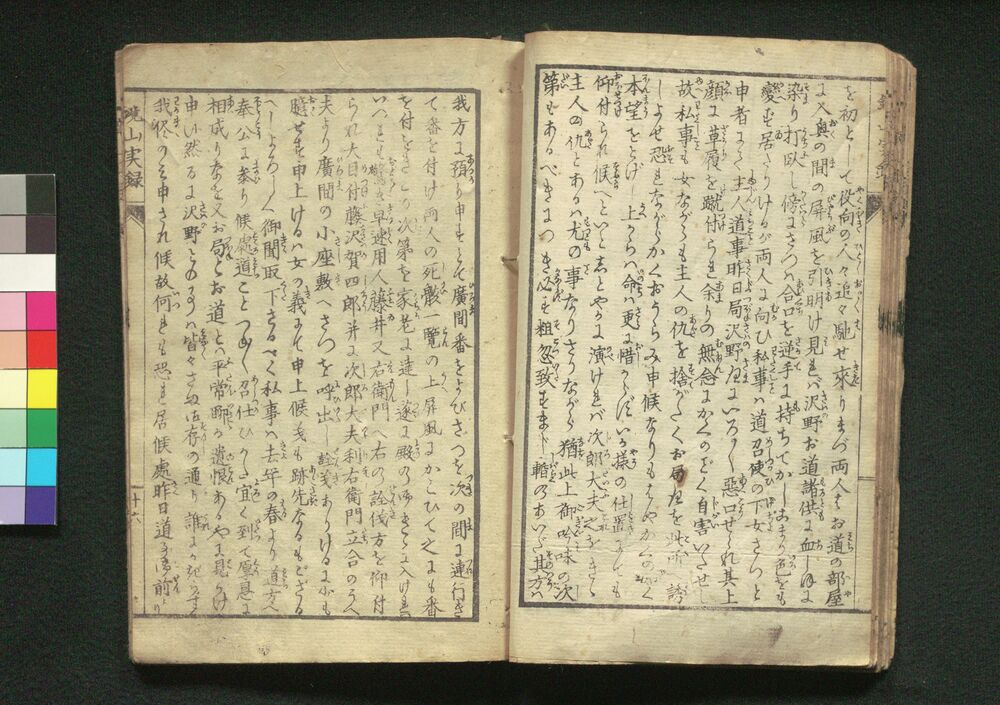 を初として役向の人々追々馳せ來りまづ両人をお道の部屋
に入奥の間の屏風を引明け見れバ沢野お道諸供に血しほに
染り打臥し傍にさつハ合口を逆手に持ちてかしこまり色をも
変せず居たりけるが両人に向ひ私事ハ道召使の下女さつと
申者にて主人道事昨日局沢野殿にいろ〳〵悪口せられ其上
顔に草履を蹴付られ余りの無念にかくのごとく自害いたせし
故私事も女ながらも主人の仇を捨がたくお局殿を此所へ誘
しよせ恐れながらかくおうらみ申候なりもはやかくのごとく
本望をとげし上からハ命ハ更に惜からずいか様の仕置にても
仰付られ候へといとしとやかに演けれバ次郎大夫之をきゝ
主人の仇とあるハ尤の事なりさりながら猶此上御吟味の次
第もあるべきにつき必も粗忽致すまじ暫のあいだ其方ハ
我方に預り申すとて廣間番をよびさつを次の間に連行き
て番を付け両人の死骸一覧の上屏風にかこひて之にも番
を付きこり次第を家老に達し遂に殿の御きゝに入けれ
いへども早速用人藤井又右衛門へ右の詮議方を仰付
られ大目付藤沢賀四郎并に次郎大夫利右衛門立合のうへ
夫より廣間の小座敷へさつを呼出し詮議ありけるに少も
臆せず申上けるハ女の義にて申上候ても跡先なるもござる
べしよろしく御聞取下さるべく私事ハ去年の春より道方へ
奉公に参り候處道ことつね〳〵召仕ひかた宜く到て厚恩に
相成りなを又お局とお道とハ平常聊の遺恨ありや見うけ
申さず然るに沢野どのの事ハ皆々さま御存の通り誰に
我侭のミ申され候故何れも恐れ居候處昨日道事御前
鏡山実録
十六